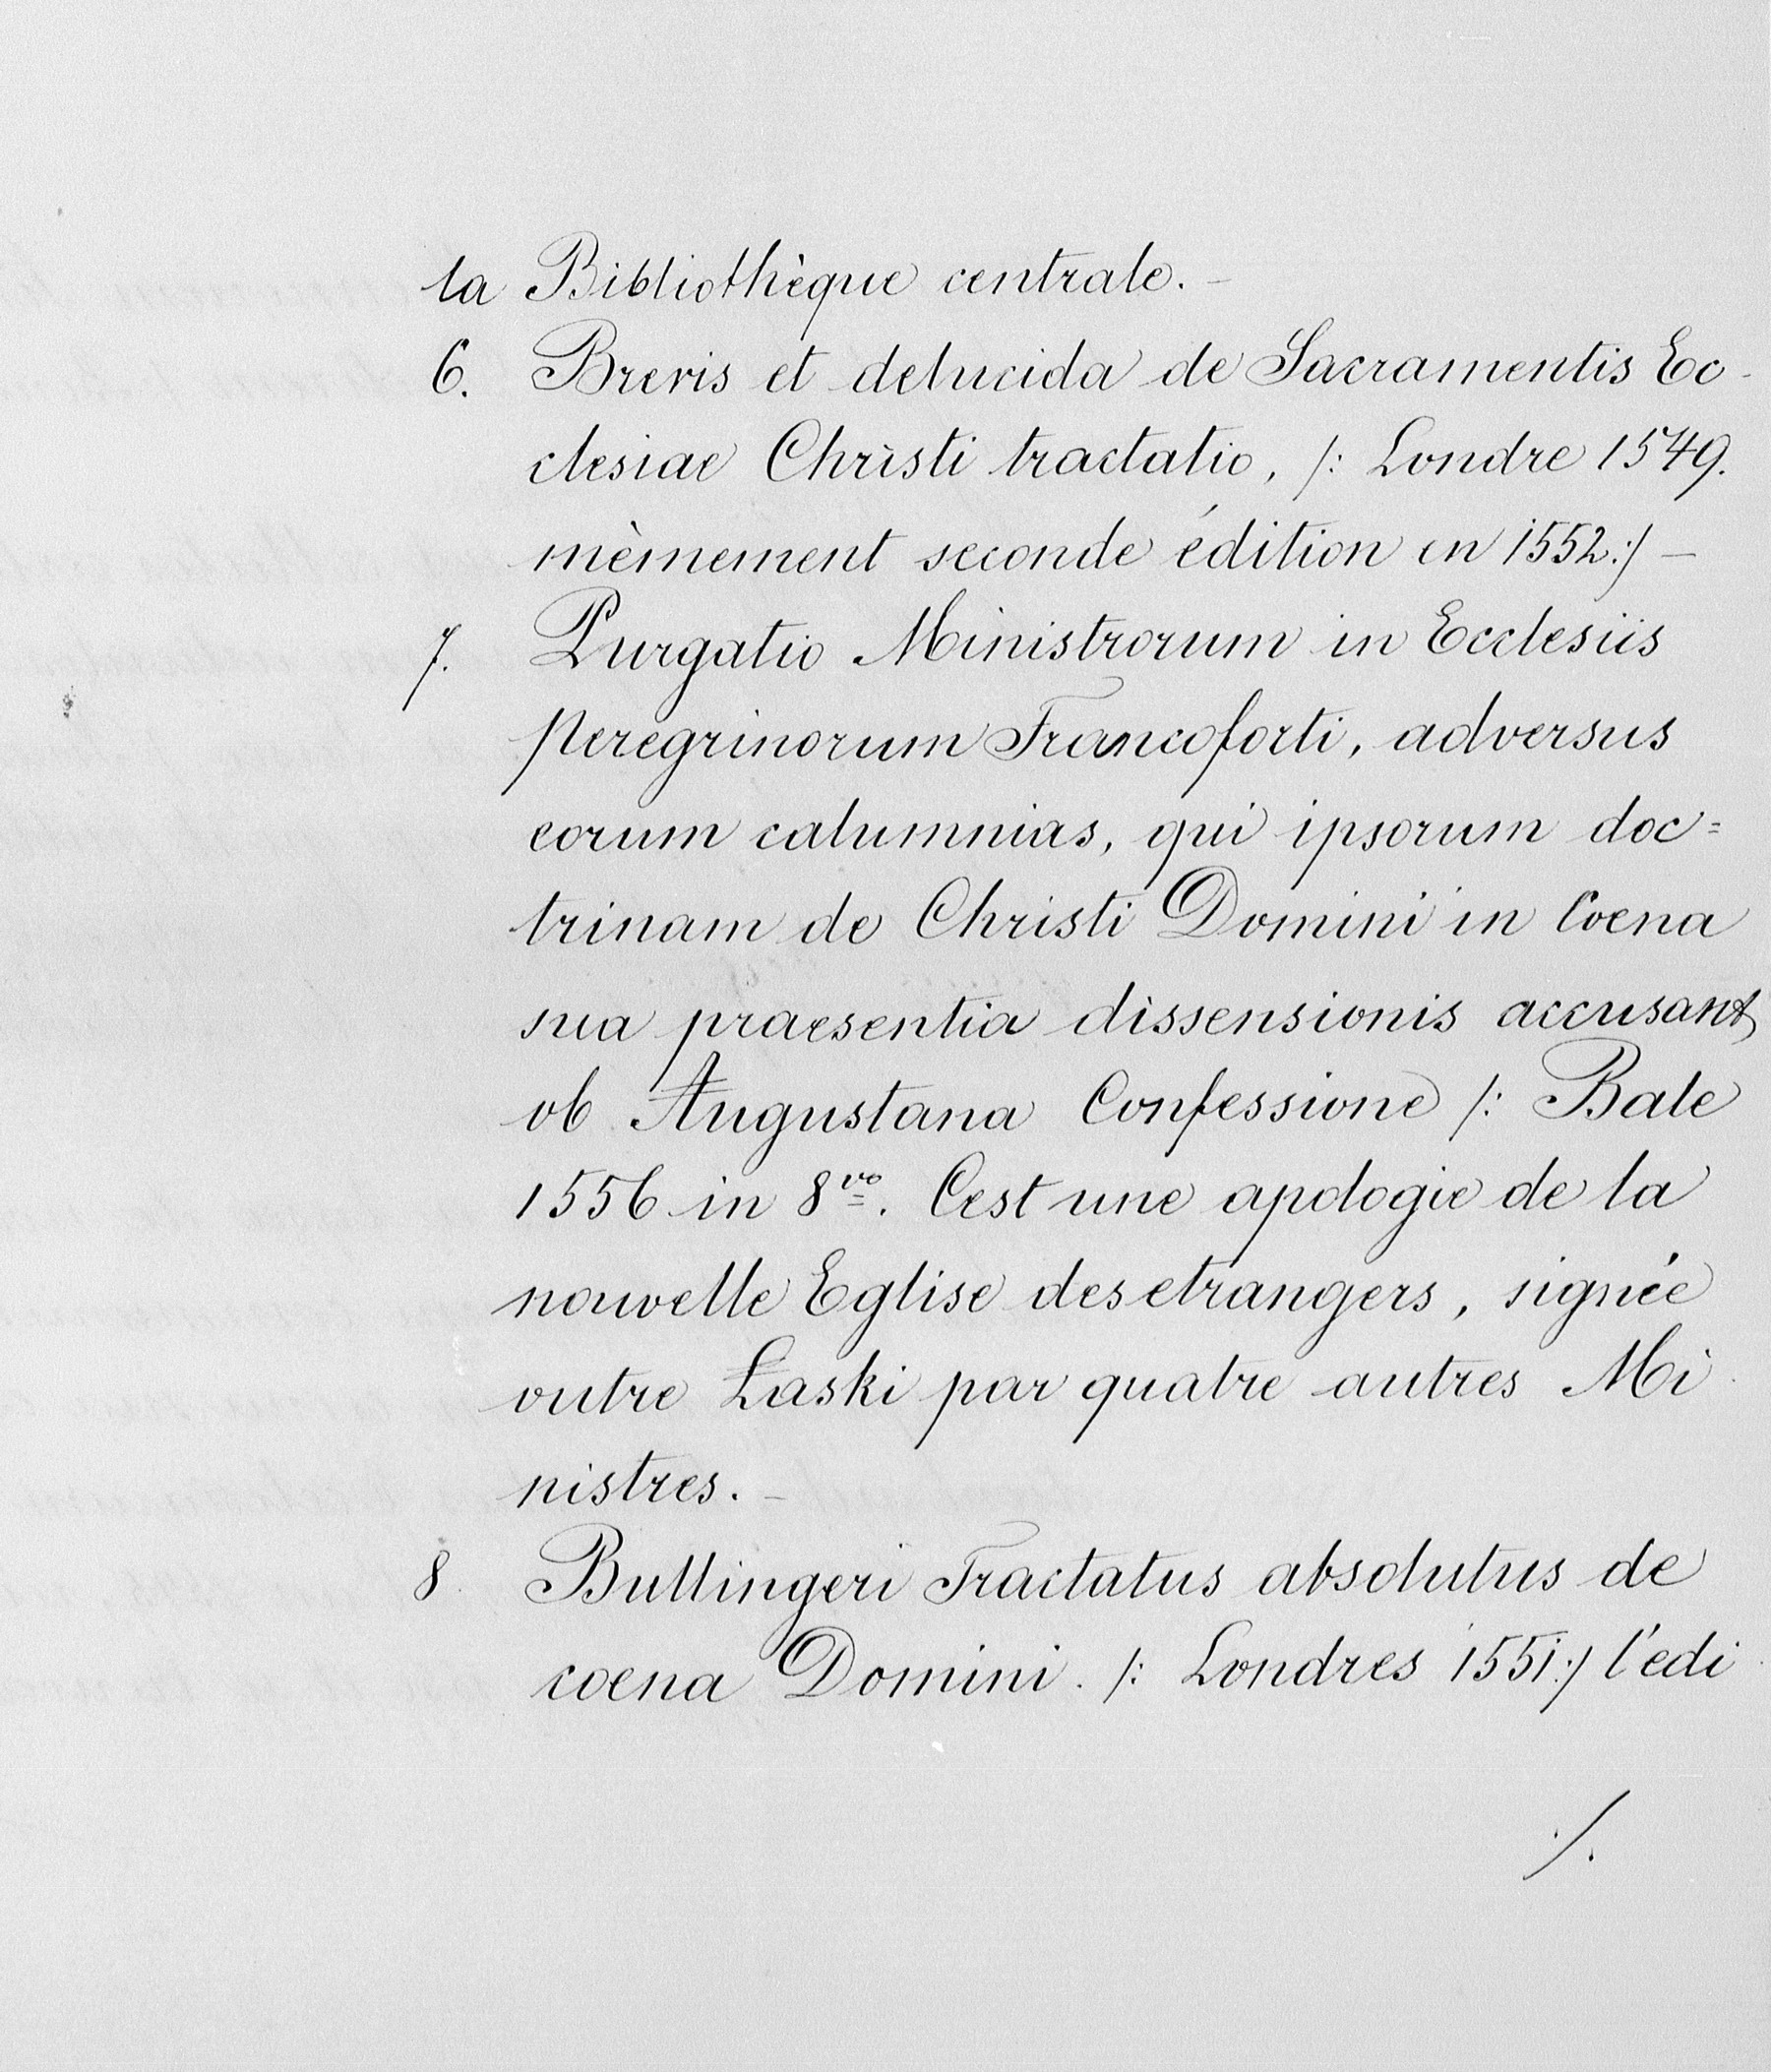 la Bibliothèque centrale. -
6. Brevis et delucida de Sacramentis Ec-
clesiae Christi tractatio, /: Londre 1549.
mèmement seconde édition en 1552:/ -
7. Purgatio Ministrorum in Ecclesiis
Peregrinorum Francoforti, adversus
eorum calumnias, qui ipsorum doc=
trinam de Christi Domini in Coena
sua praesentia dissensionis accusant
ob Augustana Confessione /: Bale
1556 in 8vo. Cest une apologie de la
nouvelle Eglise des etrangers, signée
outre Łaski par quatre autres Mi-
nistres. -
8. Bullingeri Tractatus absolutus de
coena Domini. /: Londres 1551:/ l'edi-
./.